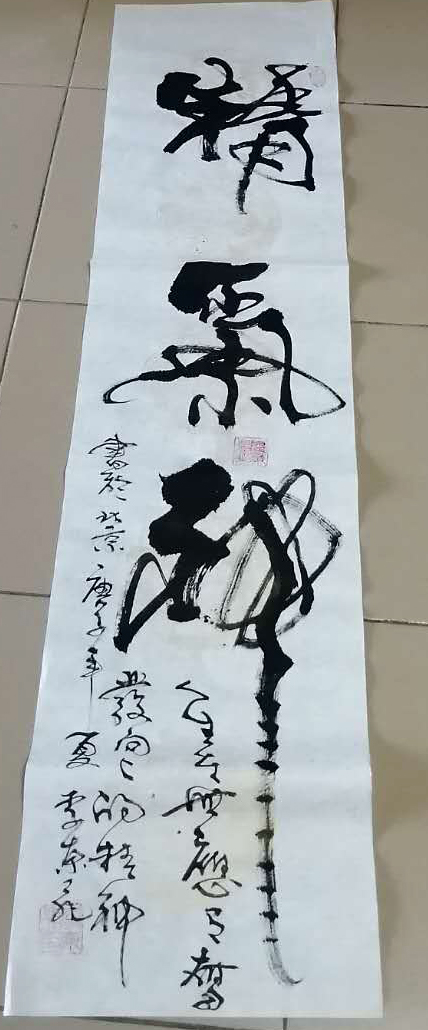 精氣神
人生在世上應有奮
發向上的精神
書於北京 庚子年夏 李東